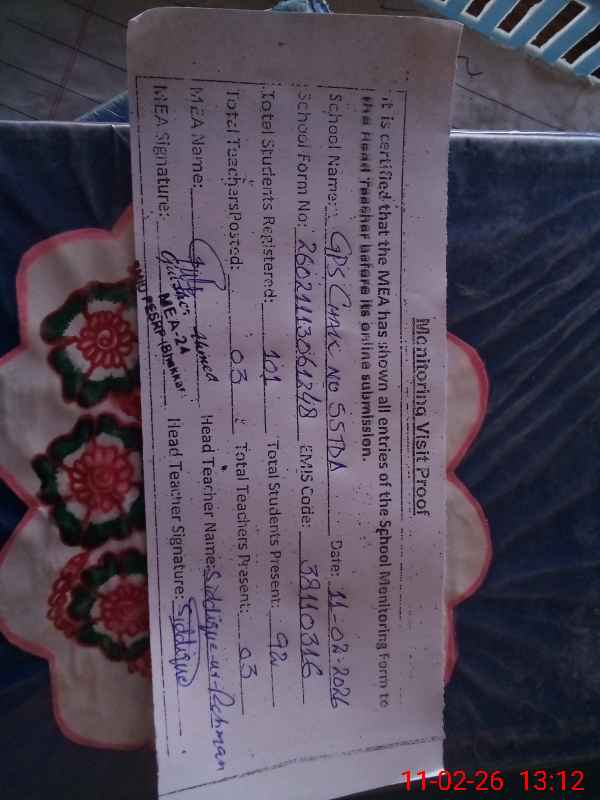 Monitoring Visit Proof
It is certified that the MEA has shown all entries of the School Monitoring Form to
the Head Teacher before its online submission.
School Name: GPS Chak No 55TDA Date: 11-02-2026
School Form No: 26021113061248 EMIS Code: 38110316
Total Students Registered: 101 Total Students Present: 92
Total TeachersPosted: 03 Total Teachers Present: 03
MEA Name: Ahmed Head Teacher Name: Siddique-ur-Rehman
MEA Signature: Head Teacher Signature: Siddique
MEA-24
PESRP (Bhakkar)
11-02-26 13:12